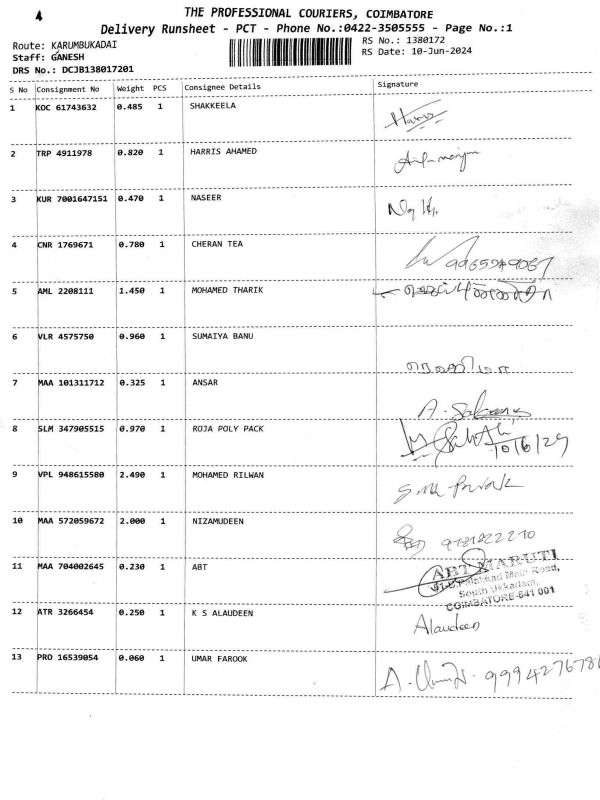 4
THE PROFESSIONAL COURIERS, COIMBATORE
Delivery Runsheet - PCT - Phone No.:0422-3505555 - Page No.:1
Route: KARUMBUKADAI
RS No.: 1380172
Staff: GANESH
RS Date: 10-Jun-2024
DRS No.: DCJB138017201
S No Consignment No Weight PCS Consignee Details Signature
1 KOC 61743632 0.485 1 SHAKKEELA
2 TRP 4911978 0.820 1 HARRIS AHAMED
3 KUR 7001647151 0.470 1 NASEER
4 CNR 1769671 0.780 1 CHERAN TEA
5 AML 2208111 1.450 1 MOHAMED THARIK
6 VLR 4575750 0.960 1 SUMAIYA BANU
7 MAA 101311712 0.325 1 ANSAR
8 SLM 347905515 0.970 1 ROJA POLY PACK 10/6/24
9 VPL 948615580 2.490 1 MOHAMED RILWAN
10 MAA 572059672 2.000 1 NIZAMUDEEN
11 MAA 704002645 0.230 1 ABT
ABT MARUTI
Palakkad Main Road,
South Ukkadam,
COIMBATORE-641 001
12 ATR 3266454 0.250 1 K S ALAUDEEN Alaudeen
13 PRO 16539054 0.060 1 UMAR FAROOK